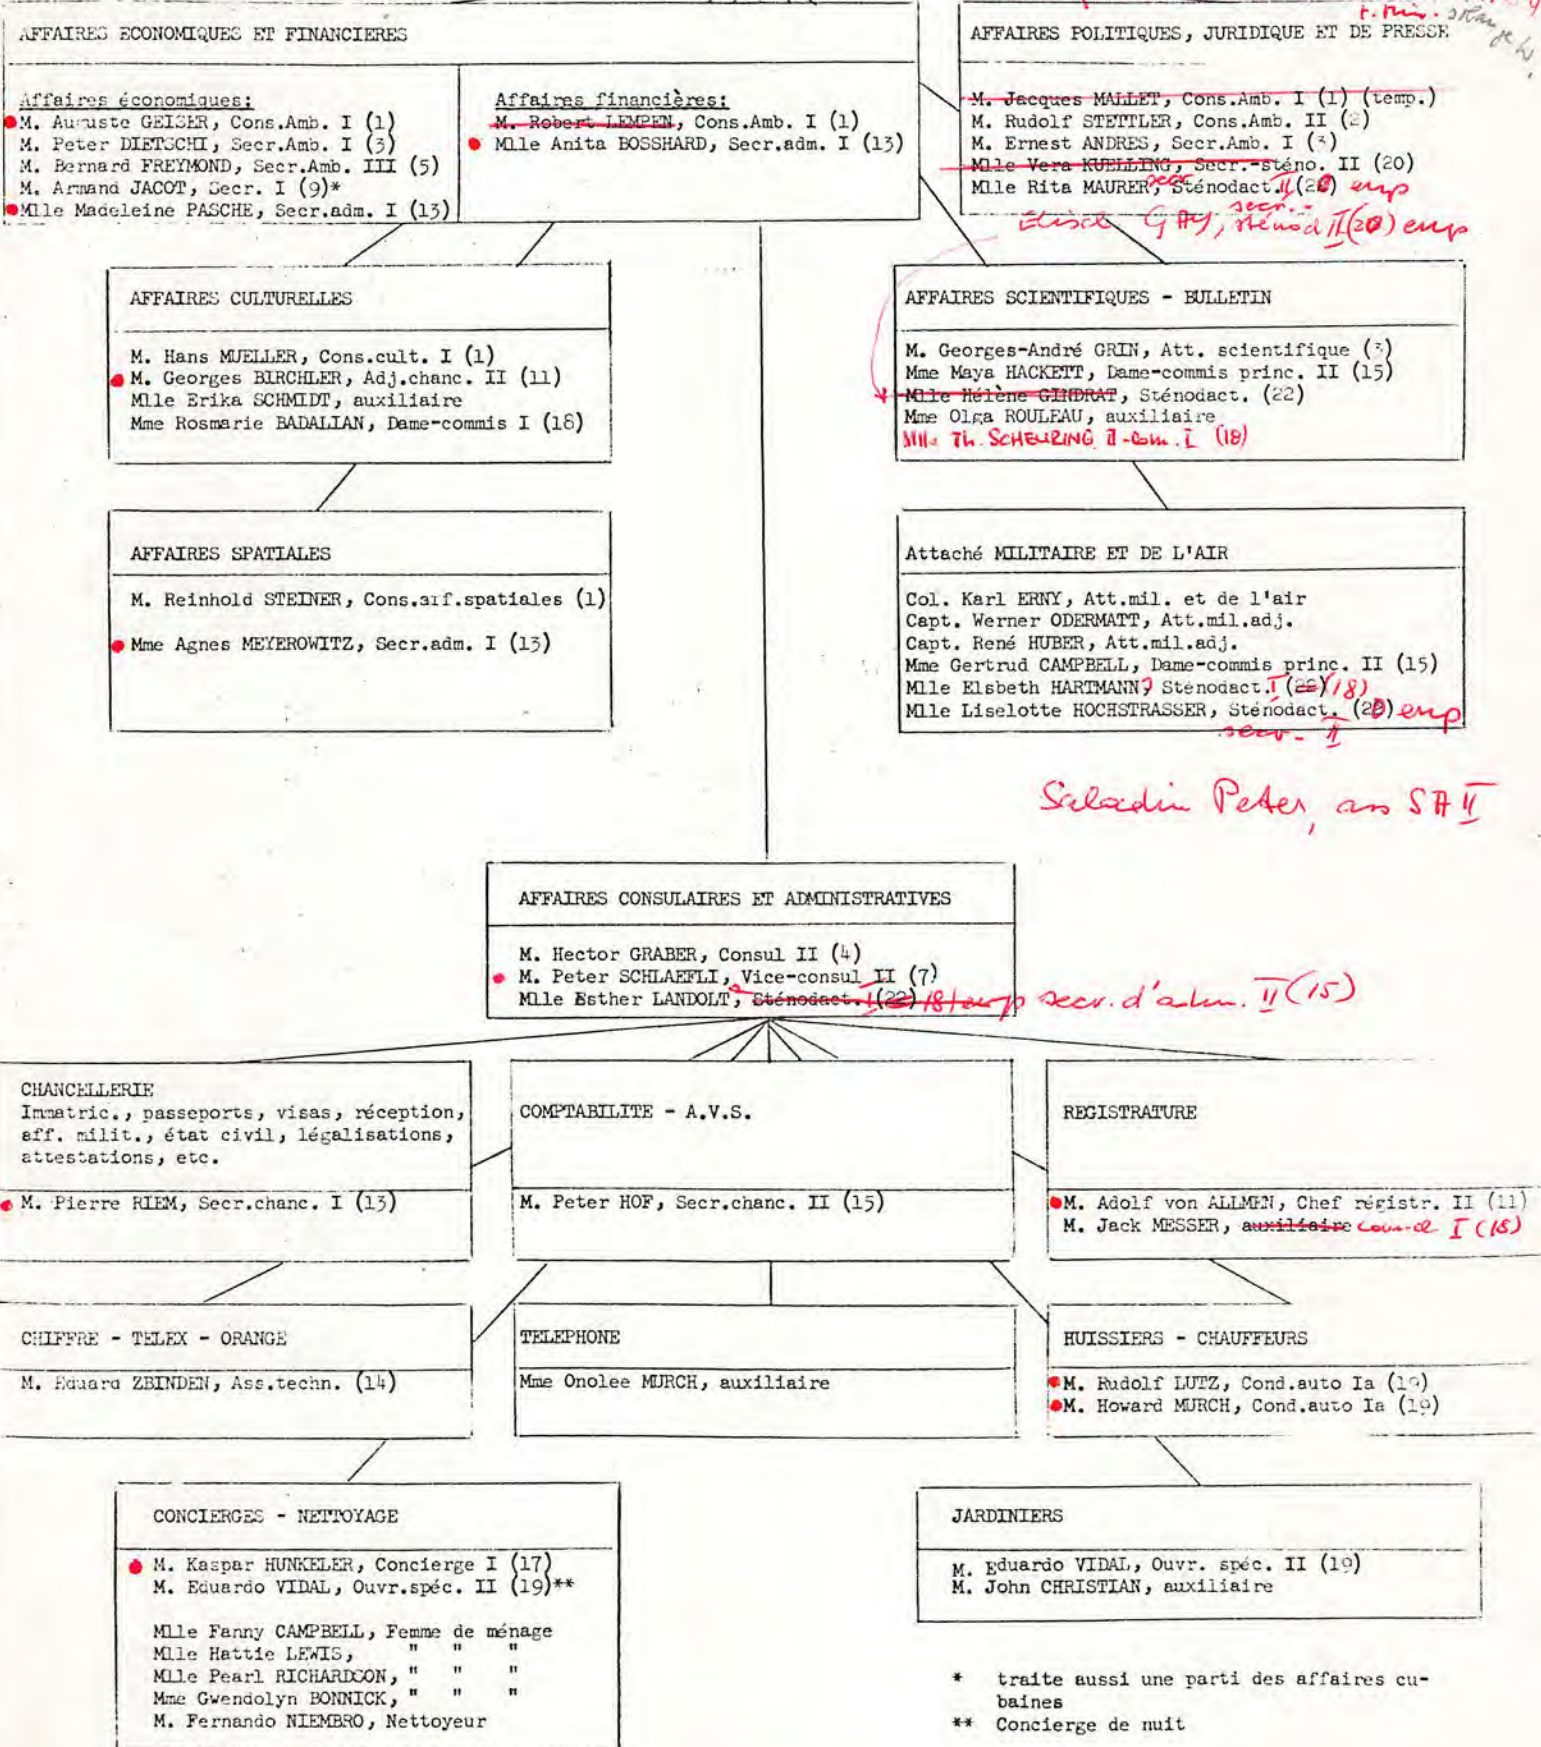 AFFAIRES ECONOMIQUES ET FINANCIERES
Affaires économiques:
M. Auguste GEISER, Cons.Amb. I (1)
M. Peter DIETSCHI, Secr.Amb. I (3)
M. Bernard FREYMOND, Secr.Amb. III (5)
M. Armand JACOT, Secr. I (9)*
Mlle Madeleine PASCHE, Secr.adm. I (13)
Affaires financières:
M. Robert LEMPEN, Cons.Amb. I (1)
Mlle Anita BOSSHARD, Secr.adm. I (13)
AFFAIRES POLITIQUES, JURIDIQUE ET DE PRESSE
M. Jacques MALLET, Cons.Amb. I (1) (temp.)
M. Rudolf STETTLER, Cons.Amb. II (2)
M. Ernest ANDRES, Secr.Amb. I (3)
Mlle Vera KUELLING, Secr.-sténo. II (20)
Mlle Rita MAURER, secr. Sténodact. II (20) emp
secr.-
GAY, sténod II (20) emp
AFFAIRES CULTURELLES
M. Hans MUELLER, Cons.cult. I (1)
M. Georges BIRCHLER, Adj.chanc. II (11)
Mlle Erika SCHMIDT, auxiliaire
Mme Rosmarie BADALIAN, Dame-commis I (18)
AFFAIRES SCIENTIFIQUES - BULLETIN
M. Georges-André GRIN, Att. scientifique (3)
Mme Maya HACKETT, Dame-commis princ. II (15)
Mlle Hélène GINDRAT, Sténodact. (22)
Mme Olga ROULEAU, auxiliaire
Mlle Th. SCHEURING d-com. I (18)
AFFAIRES SPATIALES
M. Reinhold STEINER, Cons.aff.spatiales (1)
Mme Agnes MEYEROWITZ, Secr.adm. I (13)
Attaché MILITAIRE ET DE L'AIR
Col. Karl ERNY, Att.mil. et de l'air
Capt. Werner ODERMATT, Att.mil.adj.
Capt. René HUBER, Att.mil.adj.
Mme Gertrud CAMPBELL, Dame-commis princ. II (15)
Mlle Elsbeth HARTMANN, Sténodact. I (22) (18)
Mlle Liselotte HOCHSTRASSER, Sténodact. (20) emp
secr- II
Saladin Peter, SA II
AFFAIRES CONSULAIRES ET ADMINISTRATIVES
M. Hector GRABER, Consul II (4)
M. Peter SCHLAEFLI, Vice-consul II (7)
Mlle Esther LANDOLT, Sténodact. I (22) 18 emp secr. d'adm. II (15)
CHANCELLERIE
Immatric., passeports, visas, réception,
aff. milit., état civil, légalisations,
attestations, etc.
M. Pierre RIEM, Secr.chanc. I (13)
COMPTABILITE - A.V.S.
M. Peter HOF, Secr.chanc. II (15)
REGISTRATURE
M. Adolf von ALLMEN, Chef régistr. II (11)
M. Jack MESSER, auxiliaire I (18)
CHIFFRE - TELEX - ORANGE
M. Eduard ZBINDEN, Ass.techn. (14)
TELEPHONE
Mme Onolee MURCH, auxiliaire
HUISSIERS - CHAUFFEURS
M. Rudolf LUTZ, Cond.auto Ia (19)
M. Howard MURCH, Cond.auto Ia (19)
CONCIERGES - NETTOYAGE
M. Kaspar HUNKELER, Concierge I (17)
M. Eduardo VIDAL, Ouvr.spéc. II (19)**
Mlle Fanny CAMPBELL, Femme de ménage
Mlle Hattie LEWIS, " " "
Mlle Pearl RICHARDSON, " " "
Mme Gwendolyn BONNICK, " " "
M. Fernando NIEMBRO, Nettoyeur
JARDINIERS
M. Eduardo VIDAL, Ouvr. spéc. II (19)
M. John CHRISTIAN, auxiliaire
* traite aussi une parti des affaires cu-
baines
** Concierge de nuit